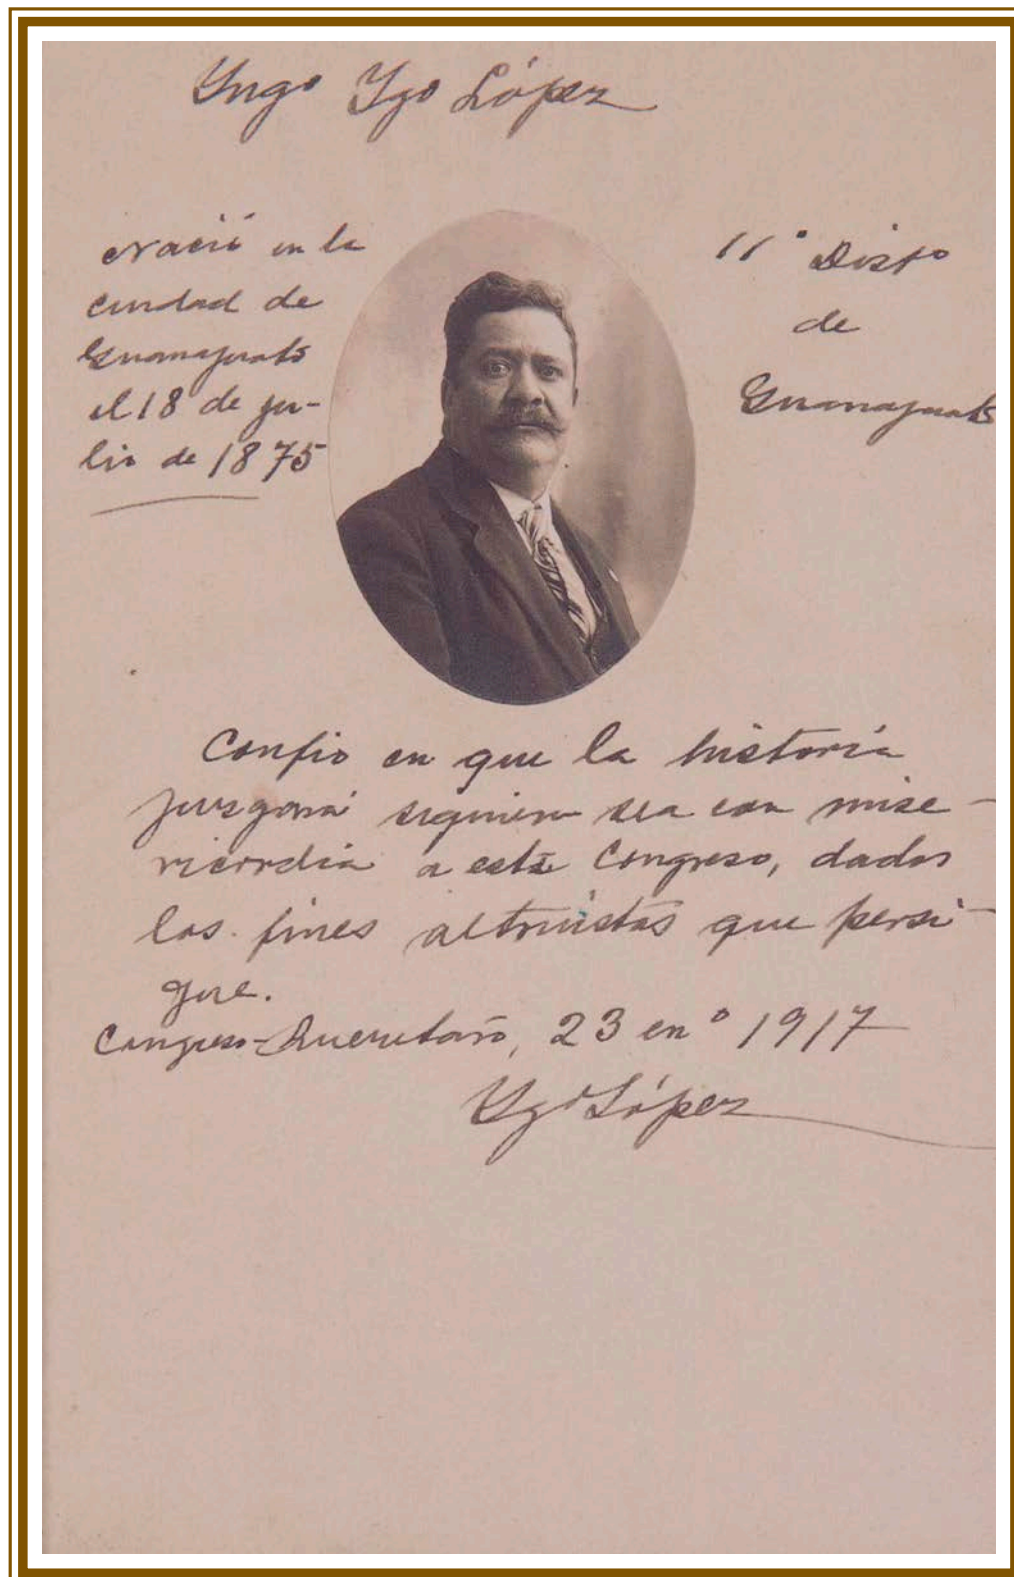 Yngo Ygo López
Nació en la
ciudad de
Guanajuato
el 18 de ju-
lio de 1875
11° Disto
de
Guanajuato
Confio en que la historia
jusgará siquiera sea con mise-
ricordia a este Congreso, dados
los fines altruistas que persi-
gue.
Congreso-Queretaro, 23 en° 1917
Ygo López